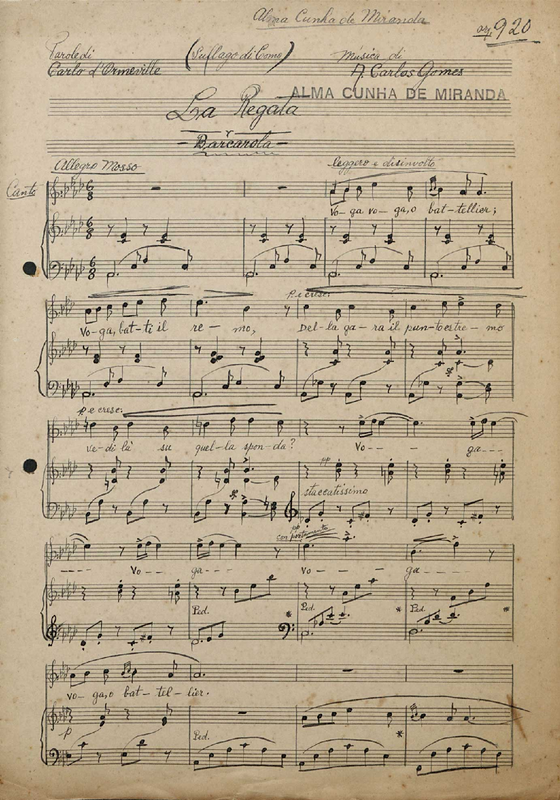 Alma Cunha de Miranda
920
Parole di
Carlo d'Ormeville
(Sul lago di Como)
Musica di
A. Carlos Gomes
ALMA CUNHA DE MIRANDA
La Regata
- Barcarola -
Allegro Mosso
leggero e disinvolto
Canto
Vo- ga vo- ga, o bat- tellier;
p. e cresc.
Vo-ga, bat-ti il re - mo, Del-la ga-ra il pun-to estre - mo
p e cresc.
ve-di là su quel-la spon-da? Vo - - - ga - - -
staccatissimo
con
Vo - - - ga - - - Vo - - - - ga - - - -
Ped. Ped. * Ped. *
vo-ga, o bat-tel-lier.
p Ped. *